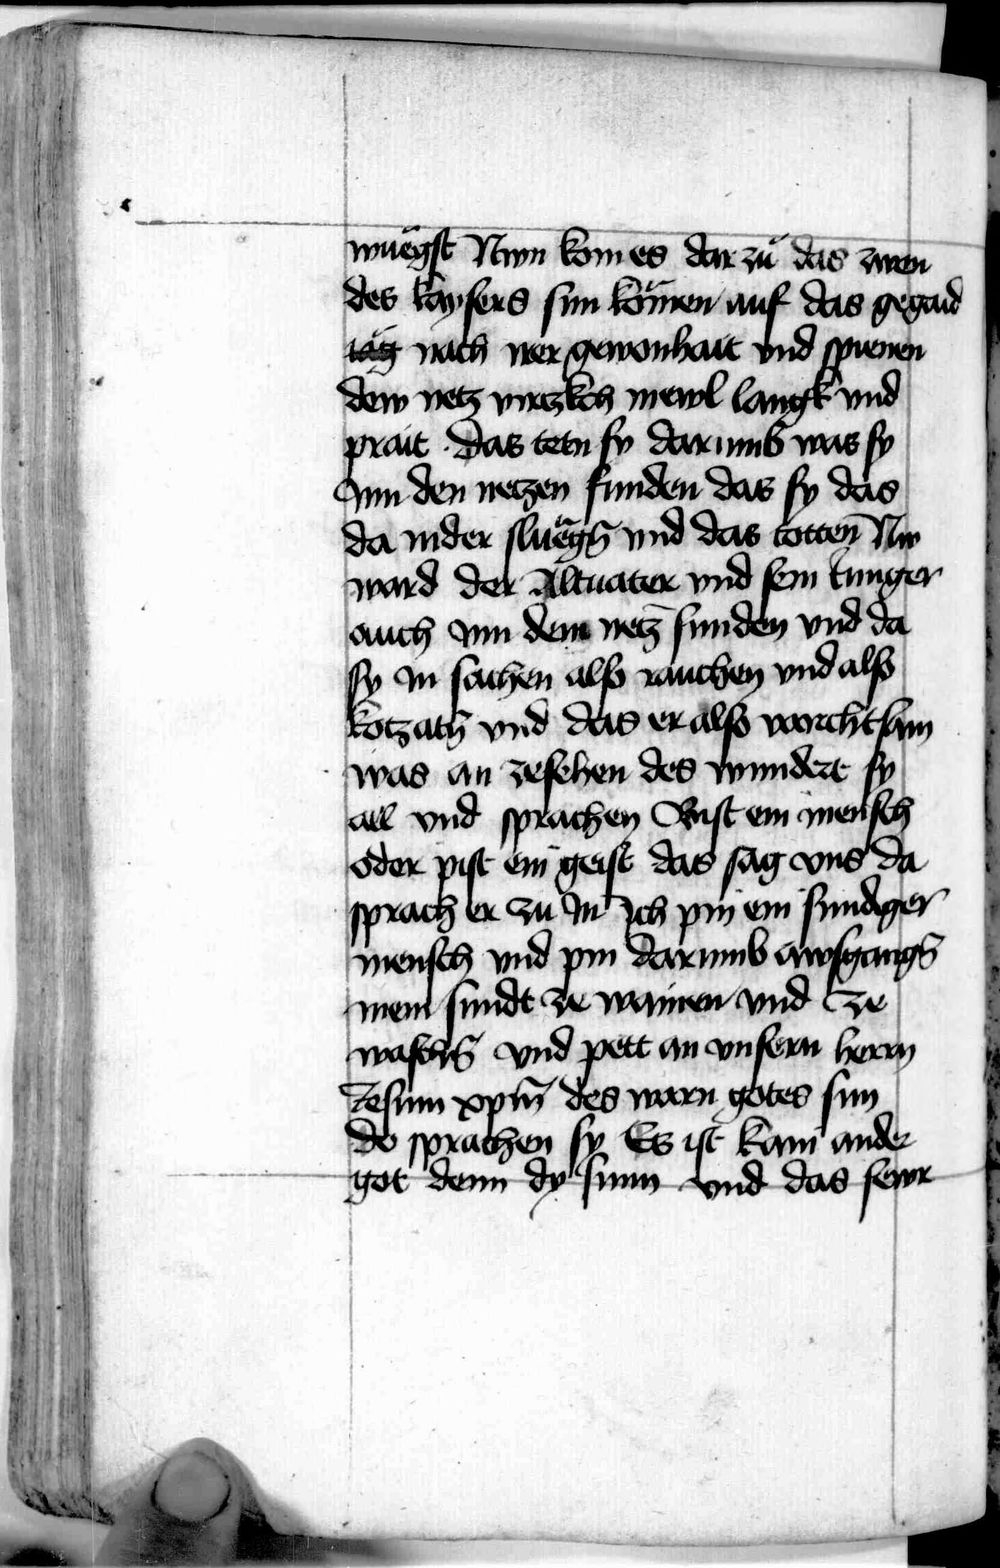 wuegst Nwn kom es dar zu das zwen
des kaysers sun komen auf das gegaid
nach irer gewonhait vnd spienen
dew netz virtzkch mewl langk vnd
prait . Das tetn sy darumb was sy
Inn den netzen funden das sy das
da nider sluegn vnd das totten Nw
ward der Altuater vnd sein Iunger
auch Inn dem netz funden vnd da
sy In sachen also rauchen vnd also
kotzatn vnd das er also vorchtsam
was an zesehen des wundert sy
all vnd sprachen Bist ein mensch
oder pist ein geist das sag vns da
sprach er zu In Ich pin ein sundiger
mensch vnd pin darumb awsgangn
mein sundt ze wainen vnd ze
waschn vnd pett an vnsern herrn
Iesum xpm des warn gotes sun
do sprachen sy Es ist kain ander
got denn dy sunn vnd das fewr